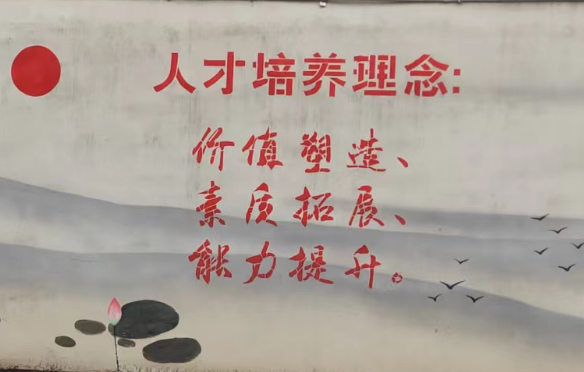 人才培养理念:
价值塑造、
素质拓展、
能力提升。